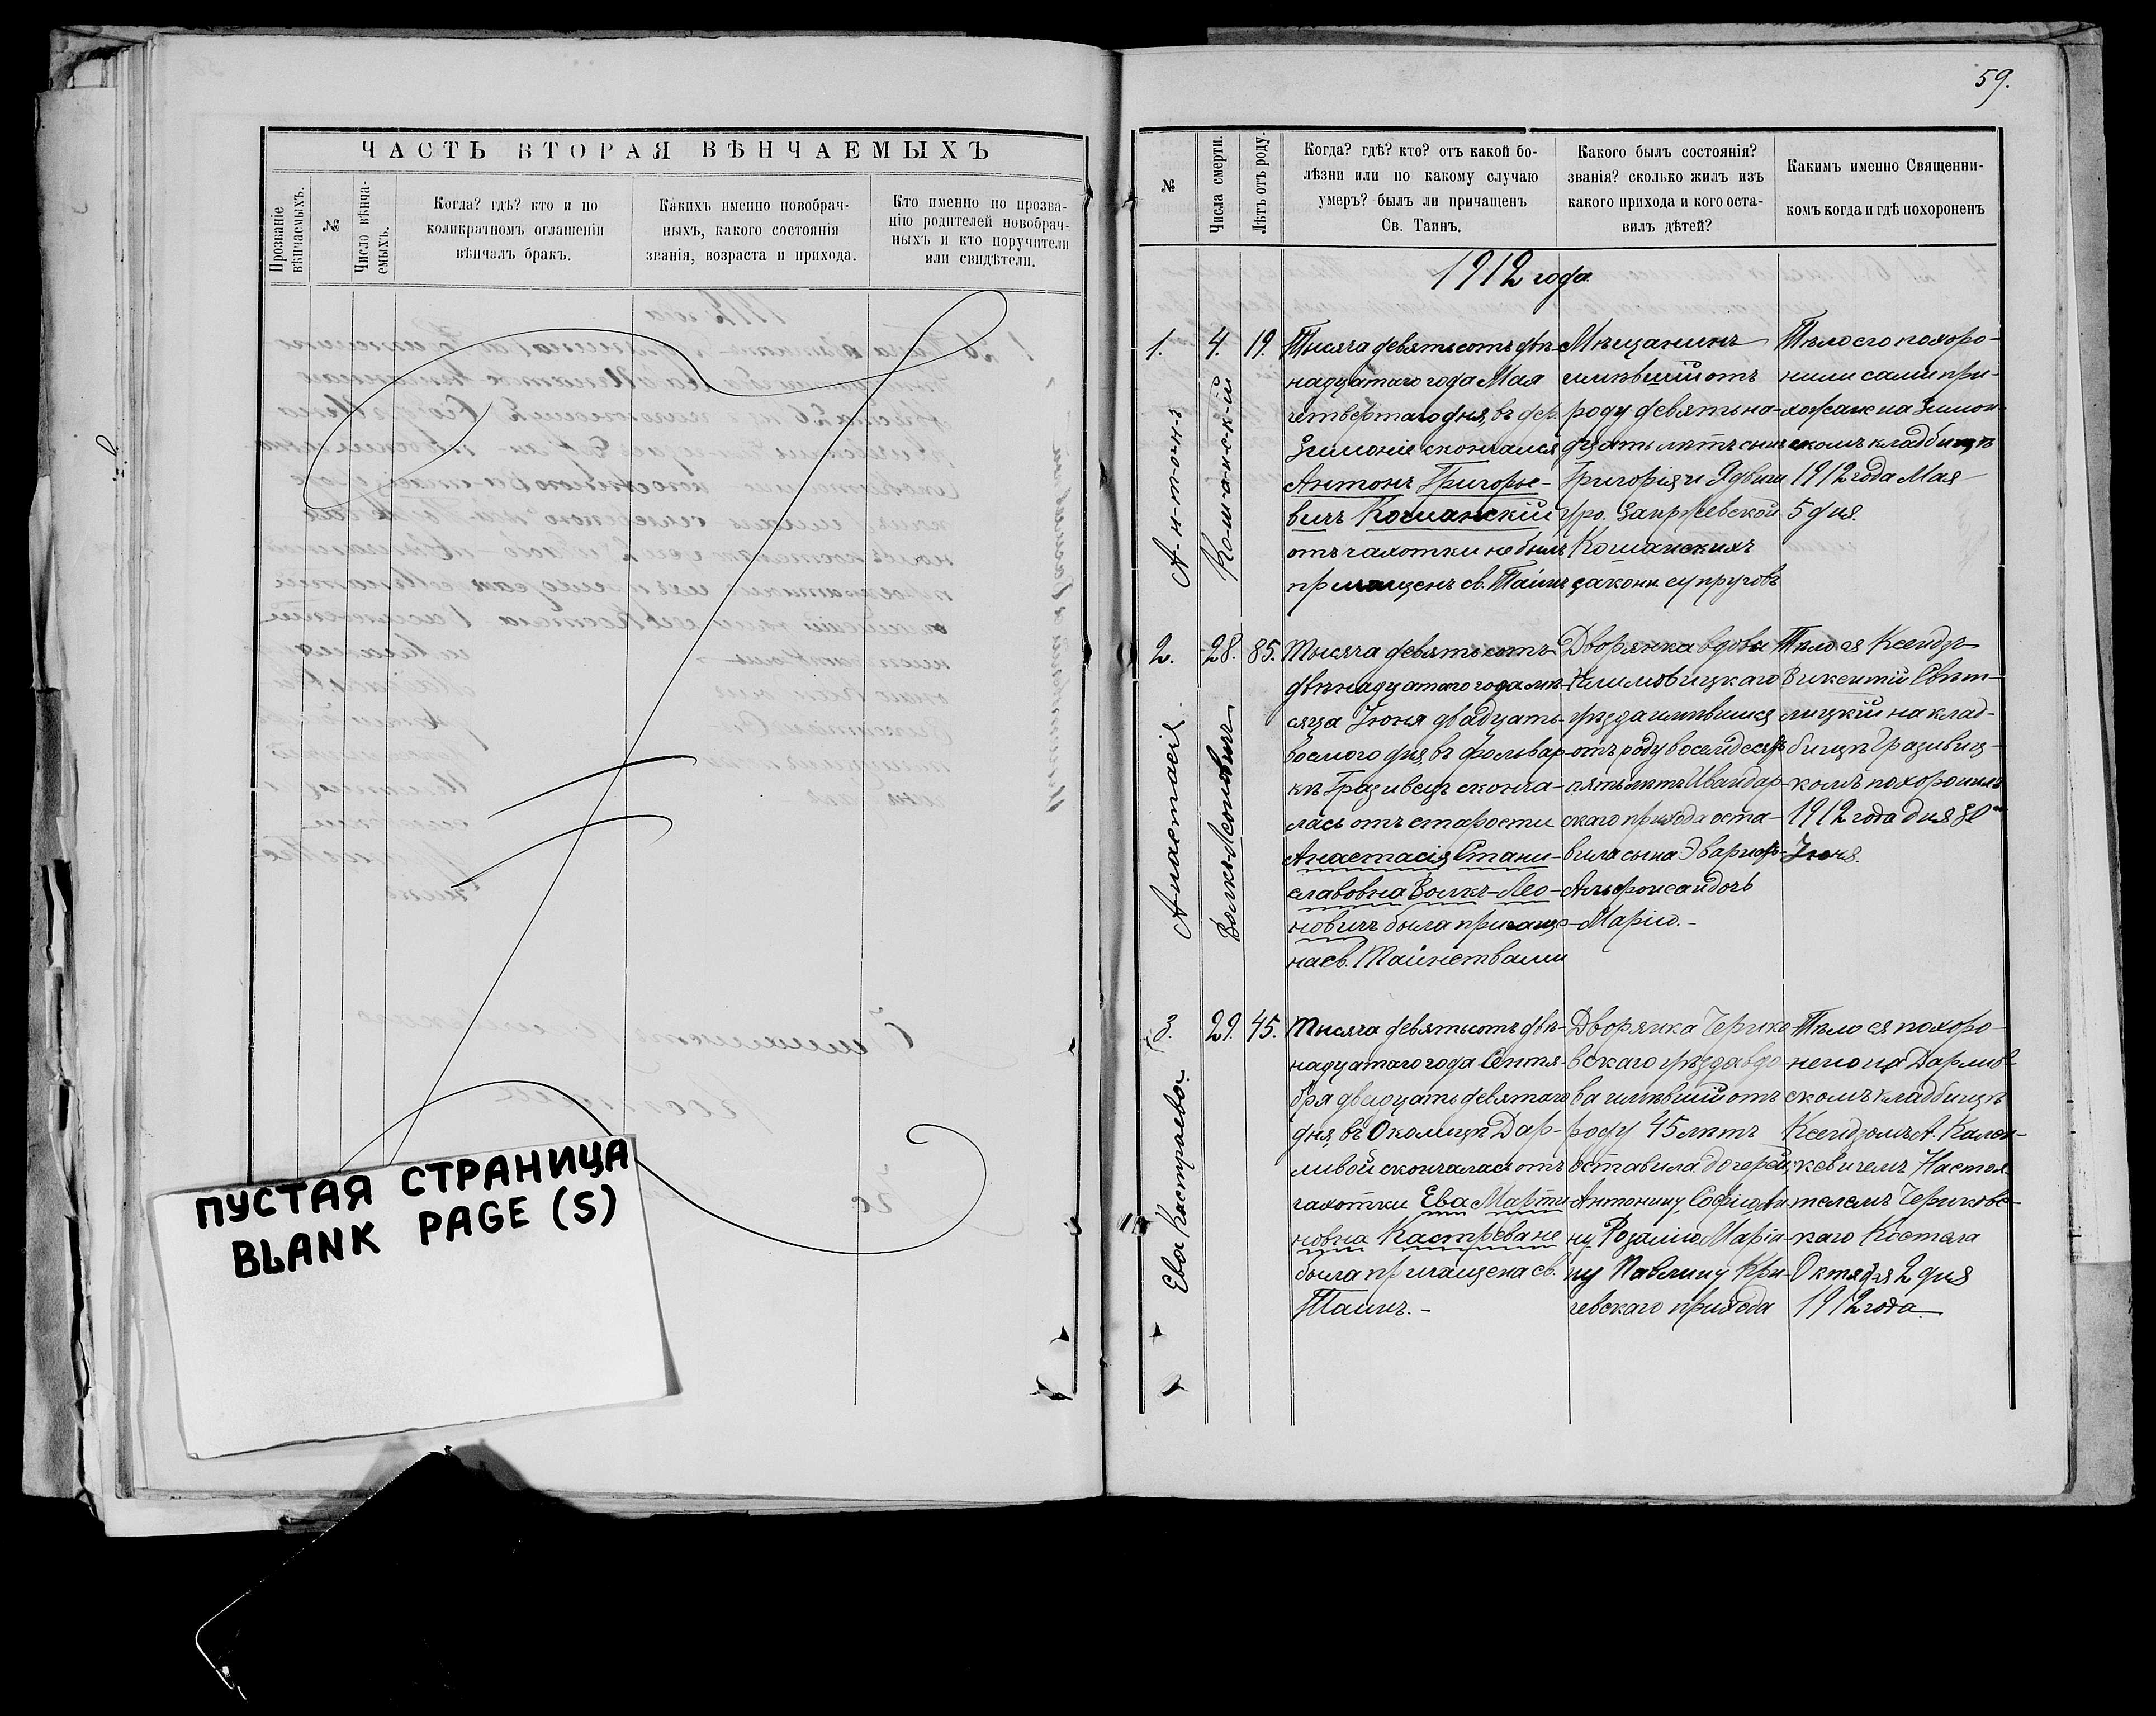 59.
ЧАСТЬ ВТОРАЯ ВѢНЧАЕМЫХЪ
Прозваніе вѣнчаемыхъ.
№
Число вѣнча-
емыхъ.
Когда? гдѣ? кто и по
коликратномъ оглашеніи
вѣнчалъ бракъ.
Какихъ именно новобрач-
ныхъ, какого состоянія
званія, возраста и прихода.
Кто именно по прозва-
нію родителей новобрач-
ныхъ и кто поручители
или свидѣтели.
ПУСТАЯ СТРАНИЦА
BLANK PAGE (S)
№
Числа смерти.
Лѣтъ отъ роду.
Когда? гдѣ? кто? отъ какой бо-
лѣзни или по какому случаю
умеръ? былъ ли причащенъ
Св. Таинъ.
Какого былъ состоянія?
званія? сколько жилъ изъ
какого прихода и кого оста-
вилъ дѣтей?
Какимъ именно Священни-
комъ когда и гдѣ похороненъ
1912 года
1.
4.
19.
А-н-т-о-н-ъ
Кошанскій
Тысяча девятьсотъ двѣ-
надцатаго года Мая
четвертаго дня, въ дер.
Зимоніе скончался
Антонъ Григорье-
вичъ Кошанскій
отъ чахотки не былъ
причащенъ св. Таинъ
Мѣщанинъ
имѣвшій отъ
роду девятьна-
дцать лѣтъ сынъ
Григорія и Ядвиги
Кошанскихъ
законн. супруговъ
Тѣло его похоро-
нили сами при-
хожане на Зимон-
скомъ кладбищѣ
1912 года Мая
5 дня.
2.
28.
85.
Анастасія
Волкъ-Леоновичъ
Тысяча девятьсотъ
двѣнадцатаго года мѣ-
сяца Іюня двадцать
восмого дня, въ фольвар-
кѣ Гразивецъ сконча-
лась отъ старости
Анастасія Стани-
славовна Волкъ-Лео-
новичъ была причаще-
на св. Таинствами
Дворянка вдова
Климовицкаго
уѣзда имѣвшая
отъ роду восемдесятъ
пять лѣтъ
скаго прихода оста-
вила сына
Альфонса и дочь
Марію.-
Тѣло ея Ксендзъ
Викентій Свѣт-
лицкій на клад-
бищѣ Гразивец-
комъ похоронилъ
1912 года дня 30
Іюня.
3.
29.
45.
Ева Кастровой
Тысяча девятьсотъ двѣ-
надцатаго года Сентя-
бря двадцать девятаго
дня, въ Околицѣ Дар-
ливой скончалась отъ
чахотки Ева Марти-
новна Кастрова не
была причащена св.
Таинъ.-
Дворянка Черико-
вскаго уѣзда вдо-
ва имѣвшій отъ
роду 45 лѣтъ
оставила дочерей
Антонину, Софію,
ну Розалію, Марія-
ну Павлину Кри-
чевскаго прихода
Тѣло ея похоро-
нено на Дарлив-
скомъ кладбищѣ
Ксендзомъ А.
кевичемъ Настоя-
телемъ Чериковс-
каго Костела
Октября 2 дня
1912 года.